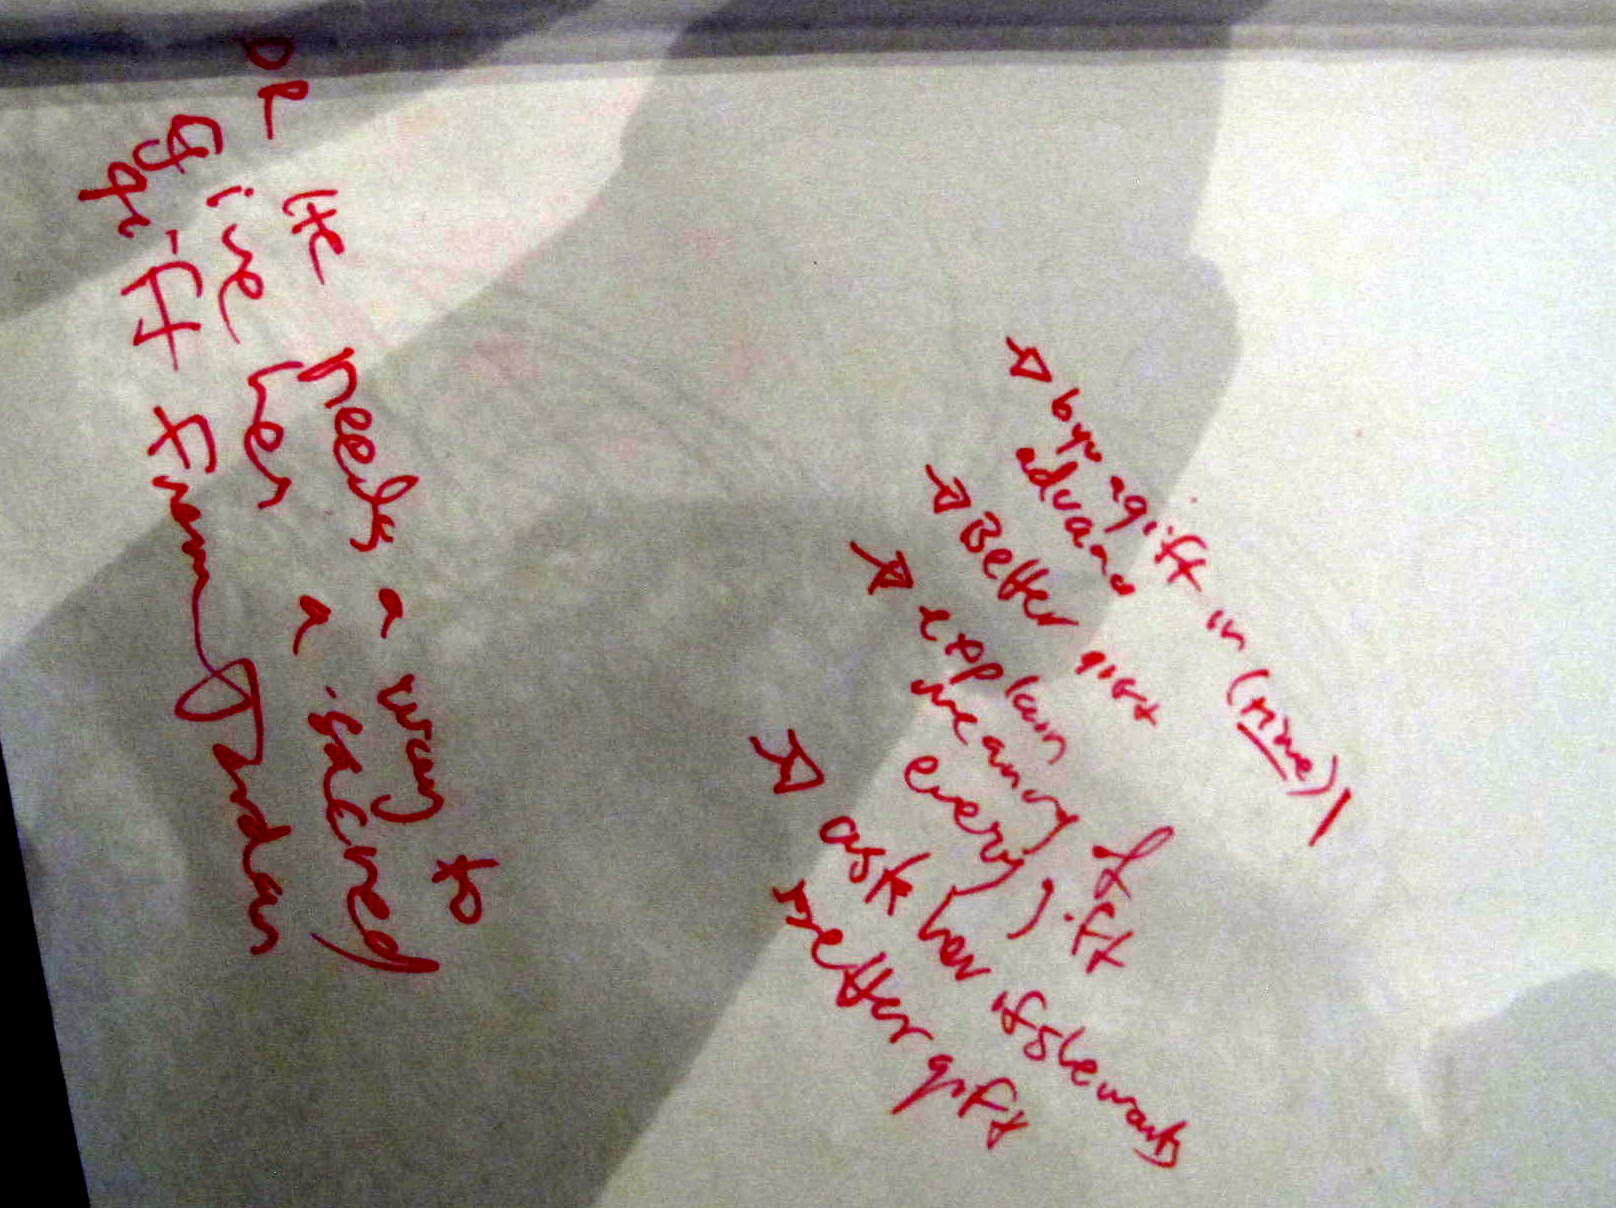 He needs a way to
give her a sacred
gift from Jordan
→ buy a gift in (time)
advance
→ Better gift
→ explain
meaning of
every gift
→ ask her if she wants
better gift